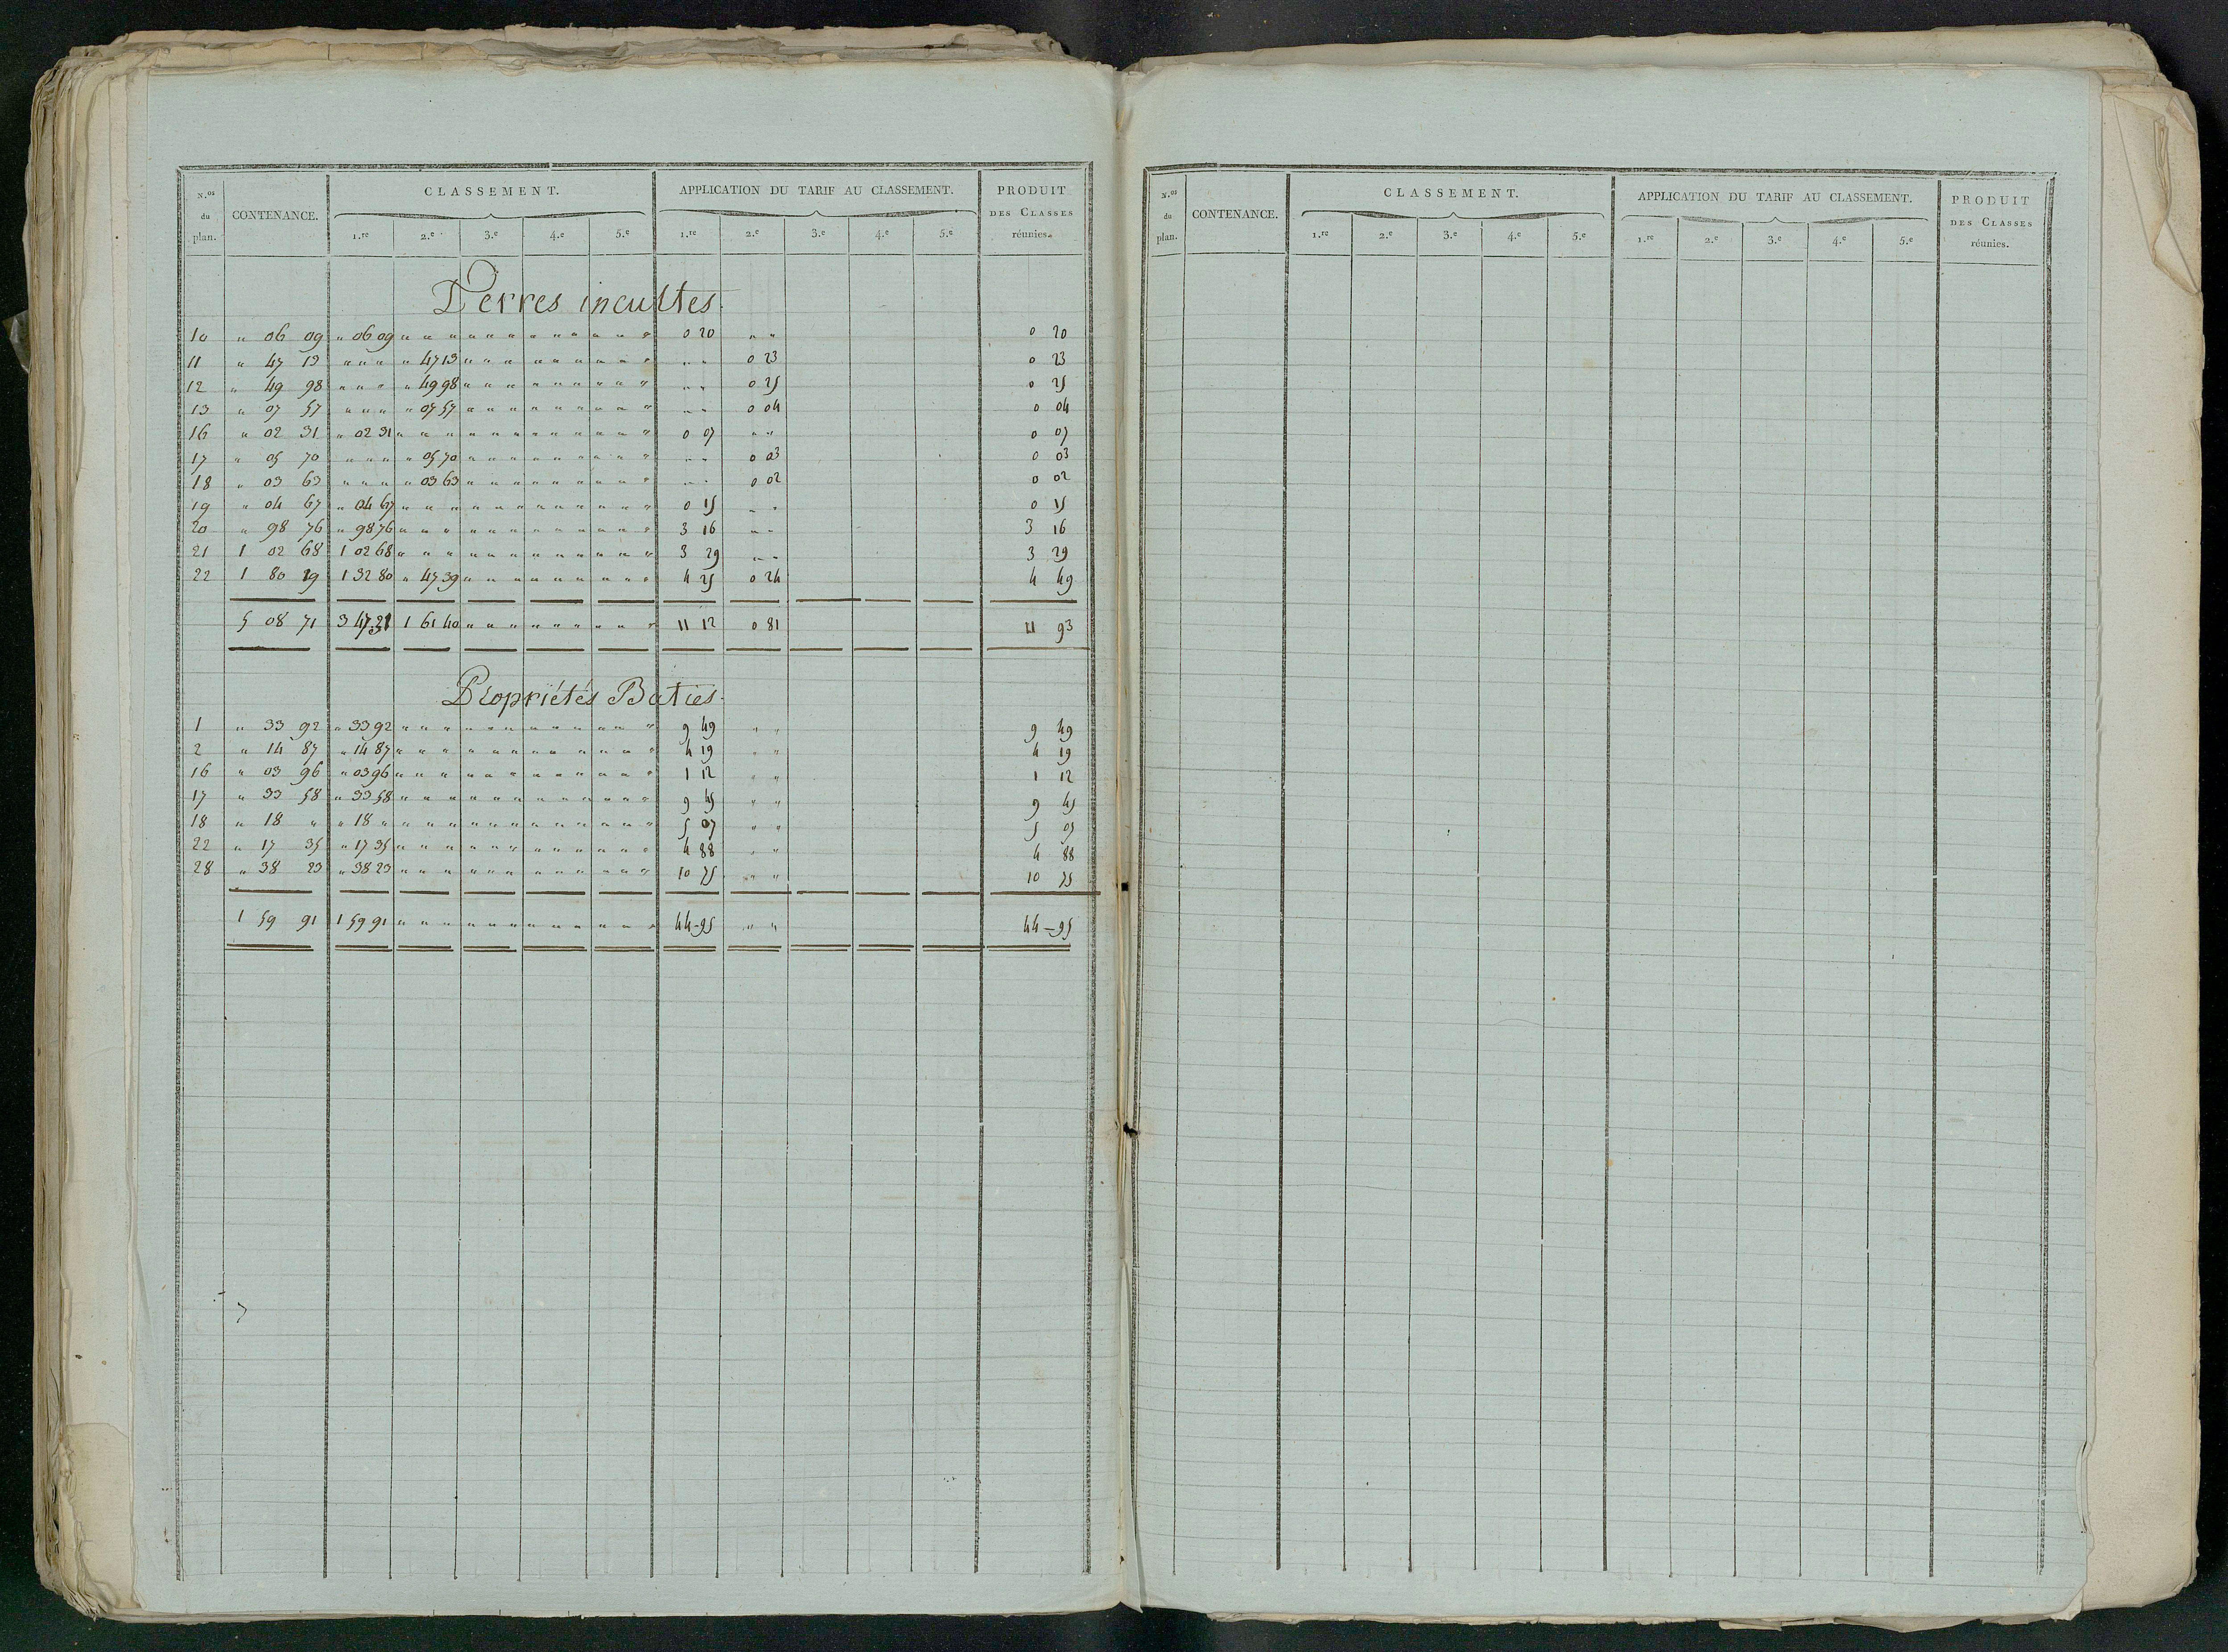 N.os du plan. CONTENANCE. CLASSEMENT. APPLICATION DU TARIF AU CLASSEMENT. PRODUIT DES CLASSES réunies.
1.re 2.e 3.e 4.e 5.e 1.re 2.e 3.e 4.e 5.e
Terres incultes.
10 " 06 09 " 06 09 " " " " " " " " " " " " 0 20 " " 0 20
11 " 47 13 " " " " 47 13 " " " " " " " " " " " 0 23 0 23
12 " 49 98 " " " " 49 98 " " " " " " " " " " " 0 25 0 25
13 " 07 57 " " " " 07 57 " " " " " " " " " " " 0 04 0 04
16 " 02 31 " 02 31 " " " " " " " " " " " " 0 07 " " 0 07
17 " 05 70 " " " " 05 70 " " " " " " " " " " " 0 03 0 03
18 " 03 63 " " " " 03 63 " " " " " " " " " " " 0 02 0 02
19 " 04 67 " 04 67 " " " " " " " " " " " " 0 15 " " 0 15
20 " 98 76 " 98 76 " " " " " " " " " " " " 3 16 " " 3 16
21 1 02 68 1 02 68 " " " " " " " " " " " " 3 29 " " 3 29
22 1 80 19 1 32 80 " 47 39 " " " " " " " " " 4 25 0 24 4 49
5 08 71 3 47 31 1 61 40 " " " " " " " " " 11 12 0 81 11 93
Propriétés Baties.
1 " 33 92 " 33 92 " " " " " " " " " " " " 9 49 " " 9 49
2 " 14 87 " 14 87 " " " " " " " " " " " " 4 19 " " 4 19
16 " 03 96 " 03 96 " " " " " " " " " " " " 1 12 " " 1 12
17 " 33 58 " 33 58 " " " " " " " " " " " " 9 45 " " 9 45
18 " 18 " " 18 " " " " " " " " " " " " " 5 07 " " 5 07
22 " 17 35 " 17 35 " " " " " " " " " " " " 4 88 " " 4 88
28 " 38 23 " 38 23 " " " " " " " " " " " " 10 75 " " 10 75
1 59 91 1 59 91 " " " " " " " " " " " " 44-95 " " 44-95
N.os du plan. CONTENANCE. CLASSEMENT. APPLICATION DU TARIF AU CLASSEMENT. PRODUIT DES CLASSES réunies.
1.re 2.e 3.e 4.e 5.e 1.re 2.e 3.e 4.e 5.e